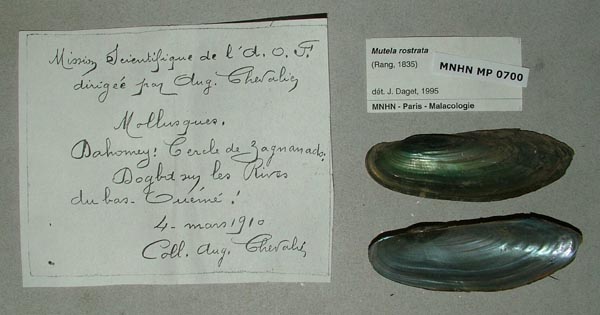 Mission Scientifique de l'A. O. F.
dirigée par Aug. Chevalier
Mollusques.
Dahomey: Cercle de Zagnanado.
sur les Rives
du bas-Ouémé!
4-mars 1910
Coll. Aug. Chevalier
Mutela rostrata
(Rang, 1835)
MNHN MP 0700
dét. J. Daget, 1995
MNHN - Paris - Malacologie